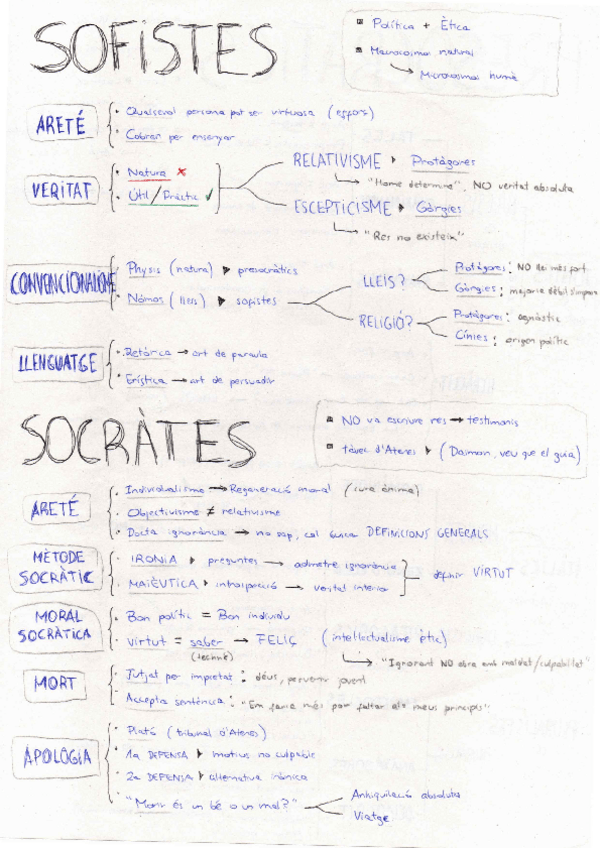 SOFISTES
Política + Ètica
Macrocosmos natural
Microcosmos humà
ARETÉ
Qualsevol persona pot ser virtuosa (esforç)
Cobrar per ensenyar
VERITAT
Natura ✗
Útil/Pràctic ✓
RELATIVISME ▸ Protàgores
"Home determina". NO veritat absoluta
ESCEPTICISME ▸ Gòrgies
"Res no existeix"
CONVENCIONALISME
Physis (natura) ▸ presocràtics
Nómos (lleis) ▸ sofistes
LLEIS?
Protàgores: NO llei més fort
Gòrgies: majoria dèbil s'imposa
RELIGIÓ?
Protàgores: agnòstic
Cínies: origen polític
LLENGUATGE
Retòrica → art de paraula
Erística → art de persuadir
SOCRÀTES
NO va escriure res → testimonis
tàvec d'Atenes ▸ (Daimon, veu que el guia)
ARETÉ
Individualisme → Regeneració moral (cura ànima)
Objectivisme ≠ relativisme
Docta ignorància → no sap, cal buscar DEFINICIONS GENERALS
MÈTODE SOCRÀTIC
IRONIA ▸ preguntes → admetre ignorància
MAIÈUTICA ▸ introspecció → veritat interior
definir VIRTUT
MORAL SOCRÀTICA
Bon polític = Bon individu
virtut = saber → FELIÇ (intel·lectualisme ètic)
(techné)
"Ignorant NO obra amb maldat/culpabilitat"
MORT
Jutjat per impietat: déus, pervertir jovent
Accepta sentència: "Em faria més por faltar als meus principis"
APOLOGIA
Plató (tribunal d'Atenes)
1a DEFENSA ▸ motius no culpable
2a DEFENSA ▸ alternativa irònica
"Morir és un bé o un mal?"
Anhiquilació absoluta
Viatge